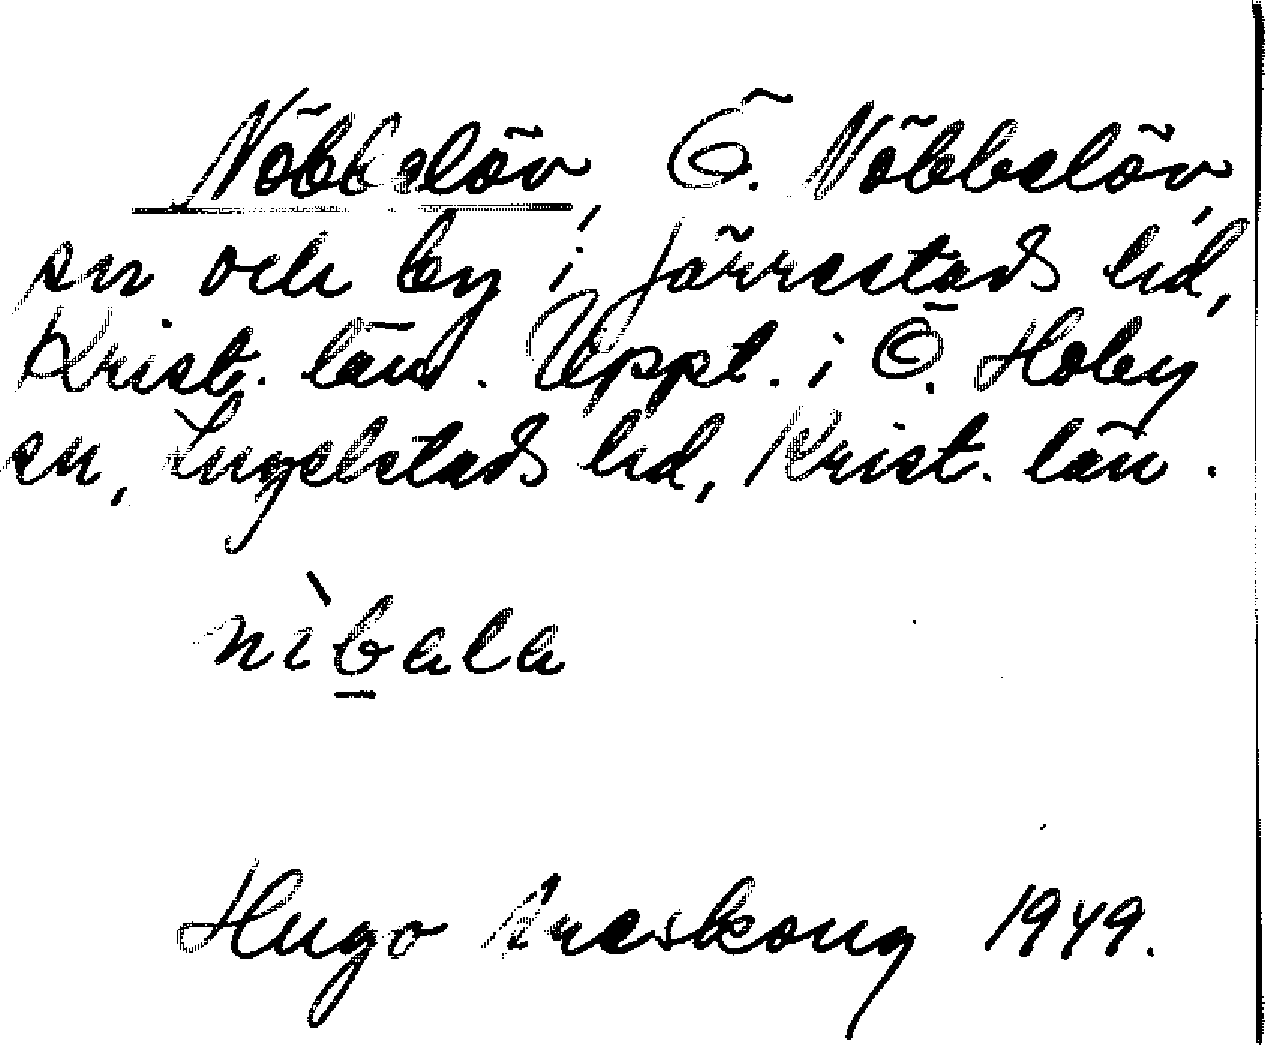 Nöbbelöv, Ö. Nöbbelöv,
sn och by i Järrestads hd,
Krist. län. Uppt. i Ö. Hoby
sn, Ingelstads hd, Krist. län.
nìbala
Hugo Areskoug 1949.